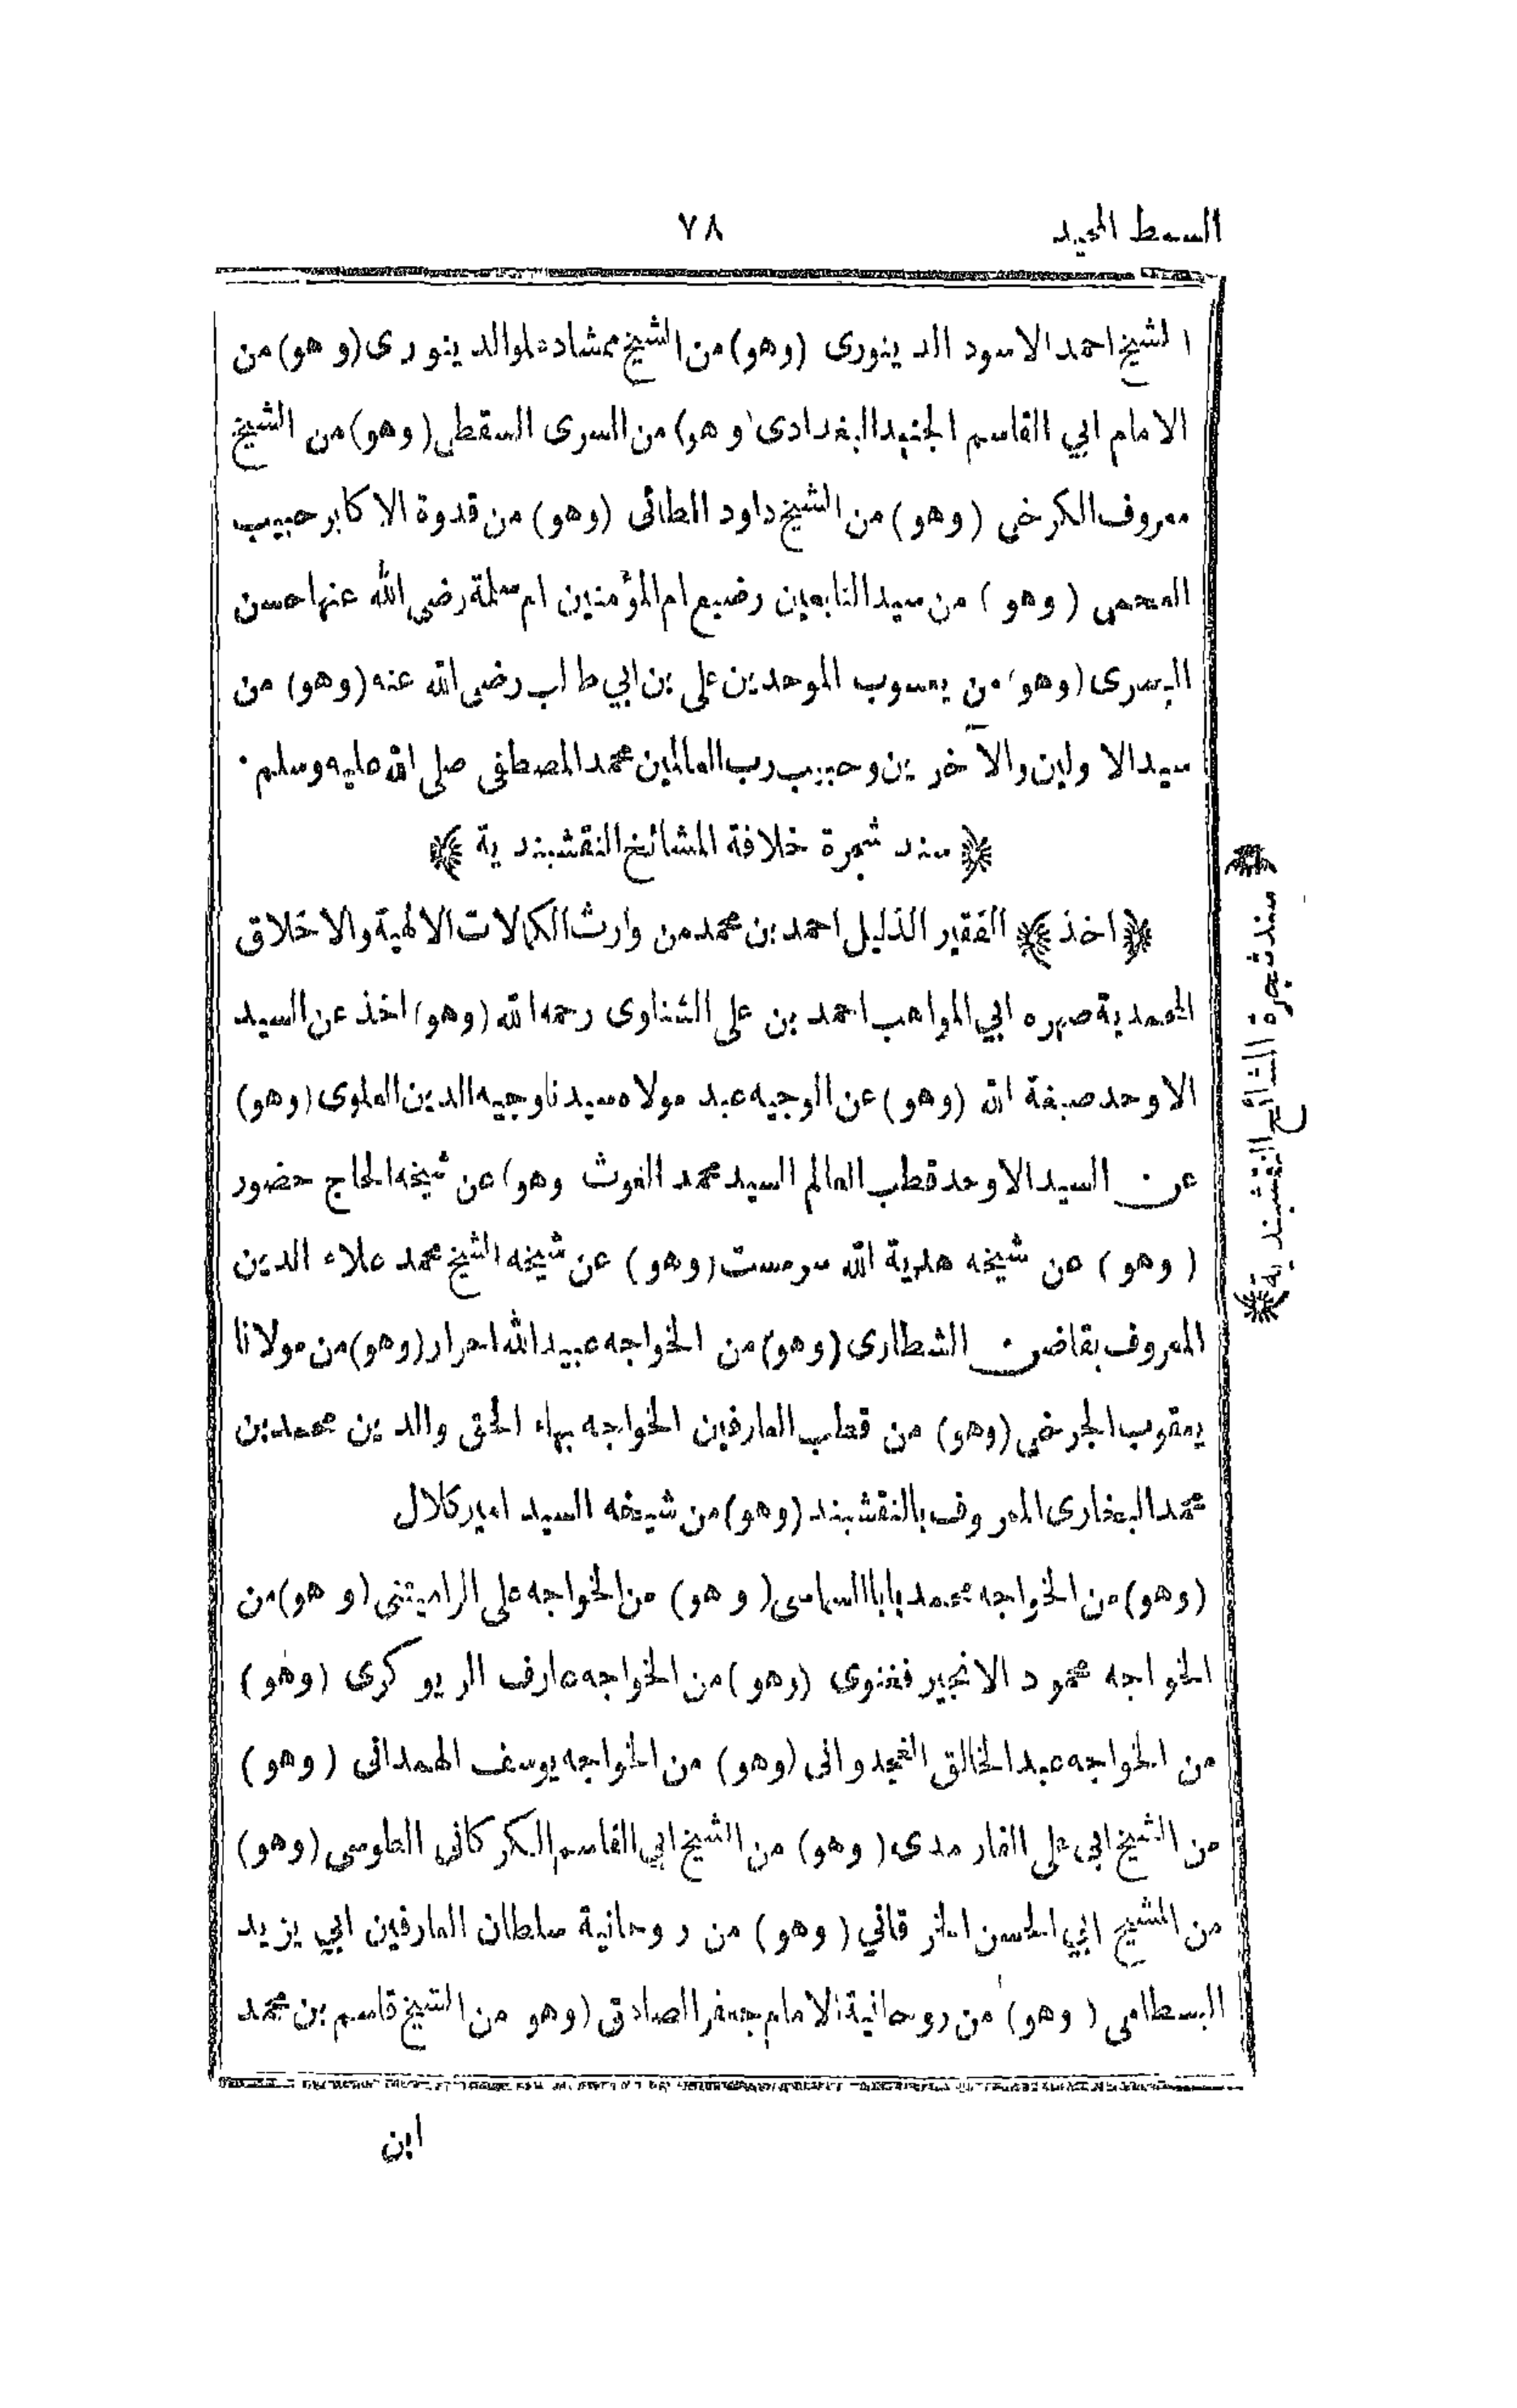 السمط المجيد
٧٨
الشيخ احمد الاسود الدينورى (وهو) من الشيخ ممشاد علو الدينورى (وهو) من
الامام ابي القاسم الجنيد البغدادى (وهو) من السرى السقطى (وهو) من الشيخ
معروف الكرخى (وهو) من الشيخ داود الطائى (وهو) من قدوة الاكابر حبيب
العجمى (وهو) من سيد التابعين رضيع ام المؤمنين ام سلمة رضى الله عنها حسن
البصرى (وهو) من يعسوب الموحدين على بن ابي طالب رضى الله عنه (وهو) من
سيد الاولين والآخرين وحبيب رب العالمين محمد المصطفى صلى الله عليه وسلم ٠
﴿ سند شجرة خلافة المشائخ النقشبندية ﴾
﴿ اخذ ﴾ الفقير الذليل احمد بن محمد من وارث الكمالات الالهية والاخلاق
المحمدية صهره ابي المواهب احمد بن على الشناوى رحمه الله (وهو) اخذ عن السيد
الاوحد صبغة الله (وهو) عن الوجيه عبد مولاه سيدنا وجيه الدين العلوى (وهو)
عن السيد الاوحد قطب العالم السيد محمد الغوث وهو) عن شيخه الحاج حضور
(وهو) عن شيخه هدية الله سرمست (وهو) عن شيخه الشيخ محمد علاء الدين
المعروف بقاضن الشطارى (وهو) من الخواجه عبيد الله احرار (وهو) من مولانا
يعقوب الجرخى (وهو) من قطب العارفين الخواجه بهاء الحق والدين محمد بن
محمد البخارى المعروف بالنقشبند (وهو) من شيخه السيد امير كلال
(وهو) من الخواجه محمد بابا السماسى (وهو) من الخواجه على الراميتنى (وهو) من
الخواجه محمود الانجير فغنوى (وهو) من الخواجه عارف الريوكرى (وهو)
من الخواجه عبد الخالق الغجدوانى (وهو) من الخواجه يوسف الهمدانى (وهو)
من الشيخ ابى على الفارمدى (وهو) من الشيخ ابي القاسم الكركانى الطوسى (وهو)
من الشيخ ابي الحسن الخرقاني (وهو) من روحانية سلطان العارفين ابي يزيد
البسطامى (وهو) من روحانية الامام جعفر الصادق (وهو من الشيخ قاسم بن محمد
ابن
سند شجرة المشائخ النقشبندية ﴾